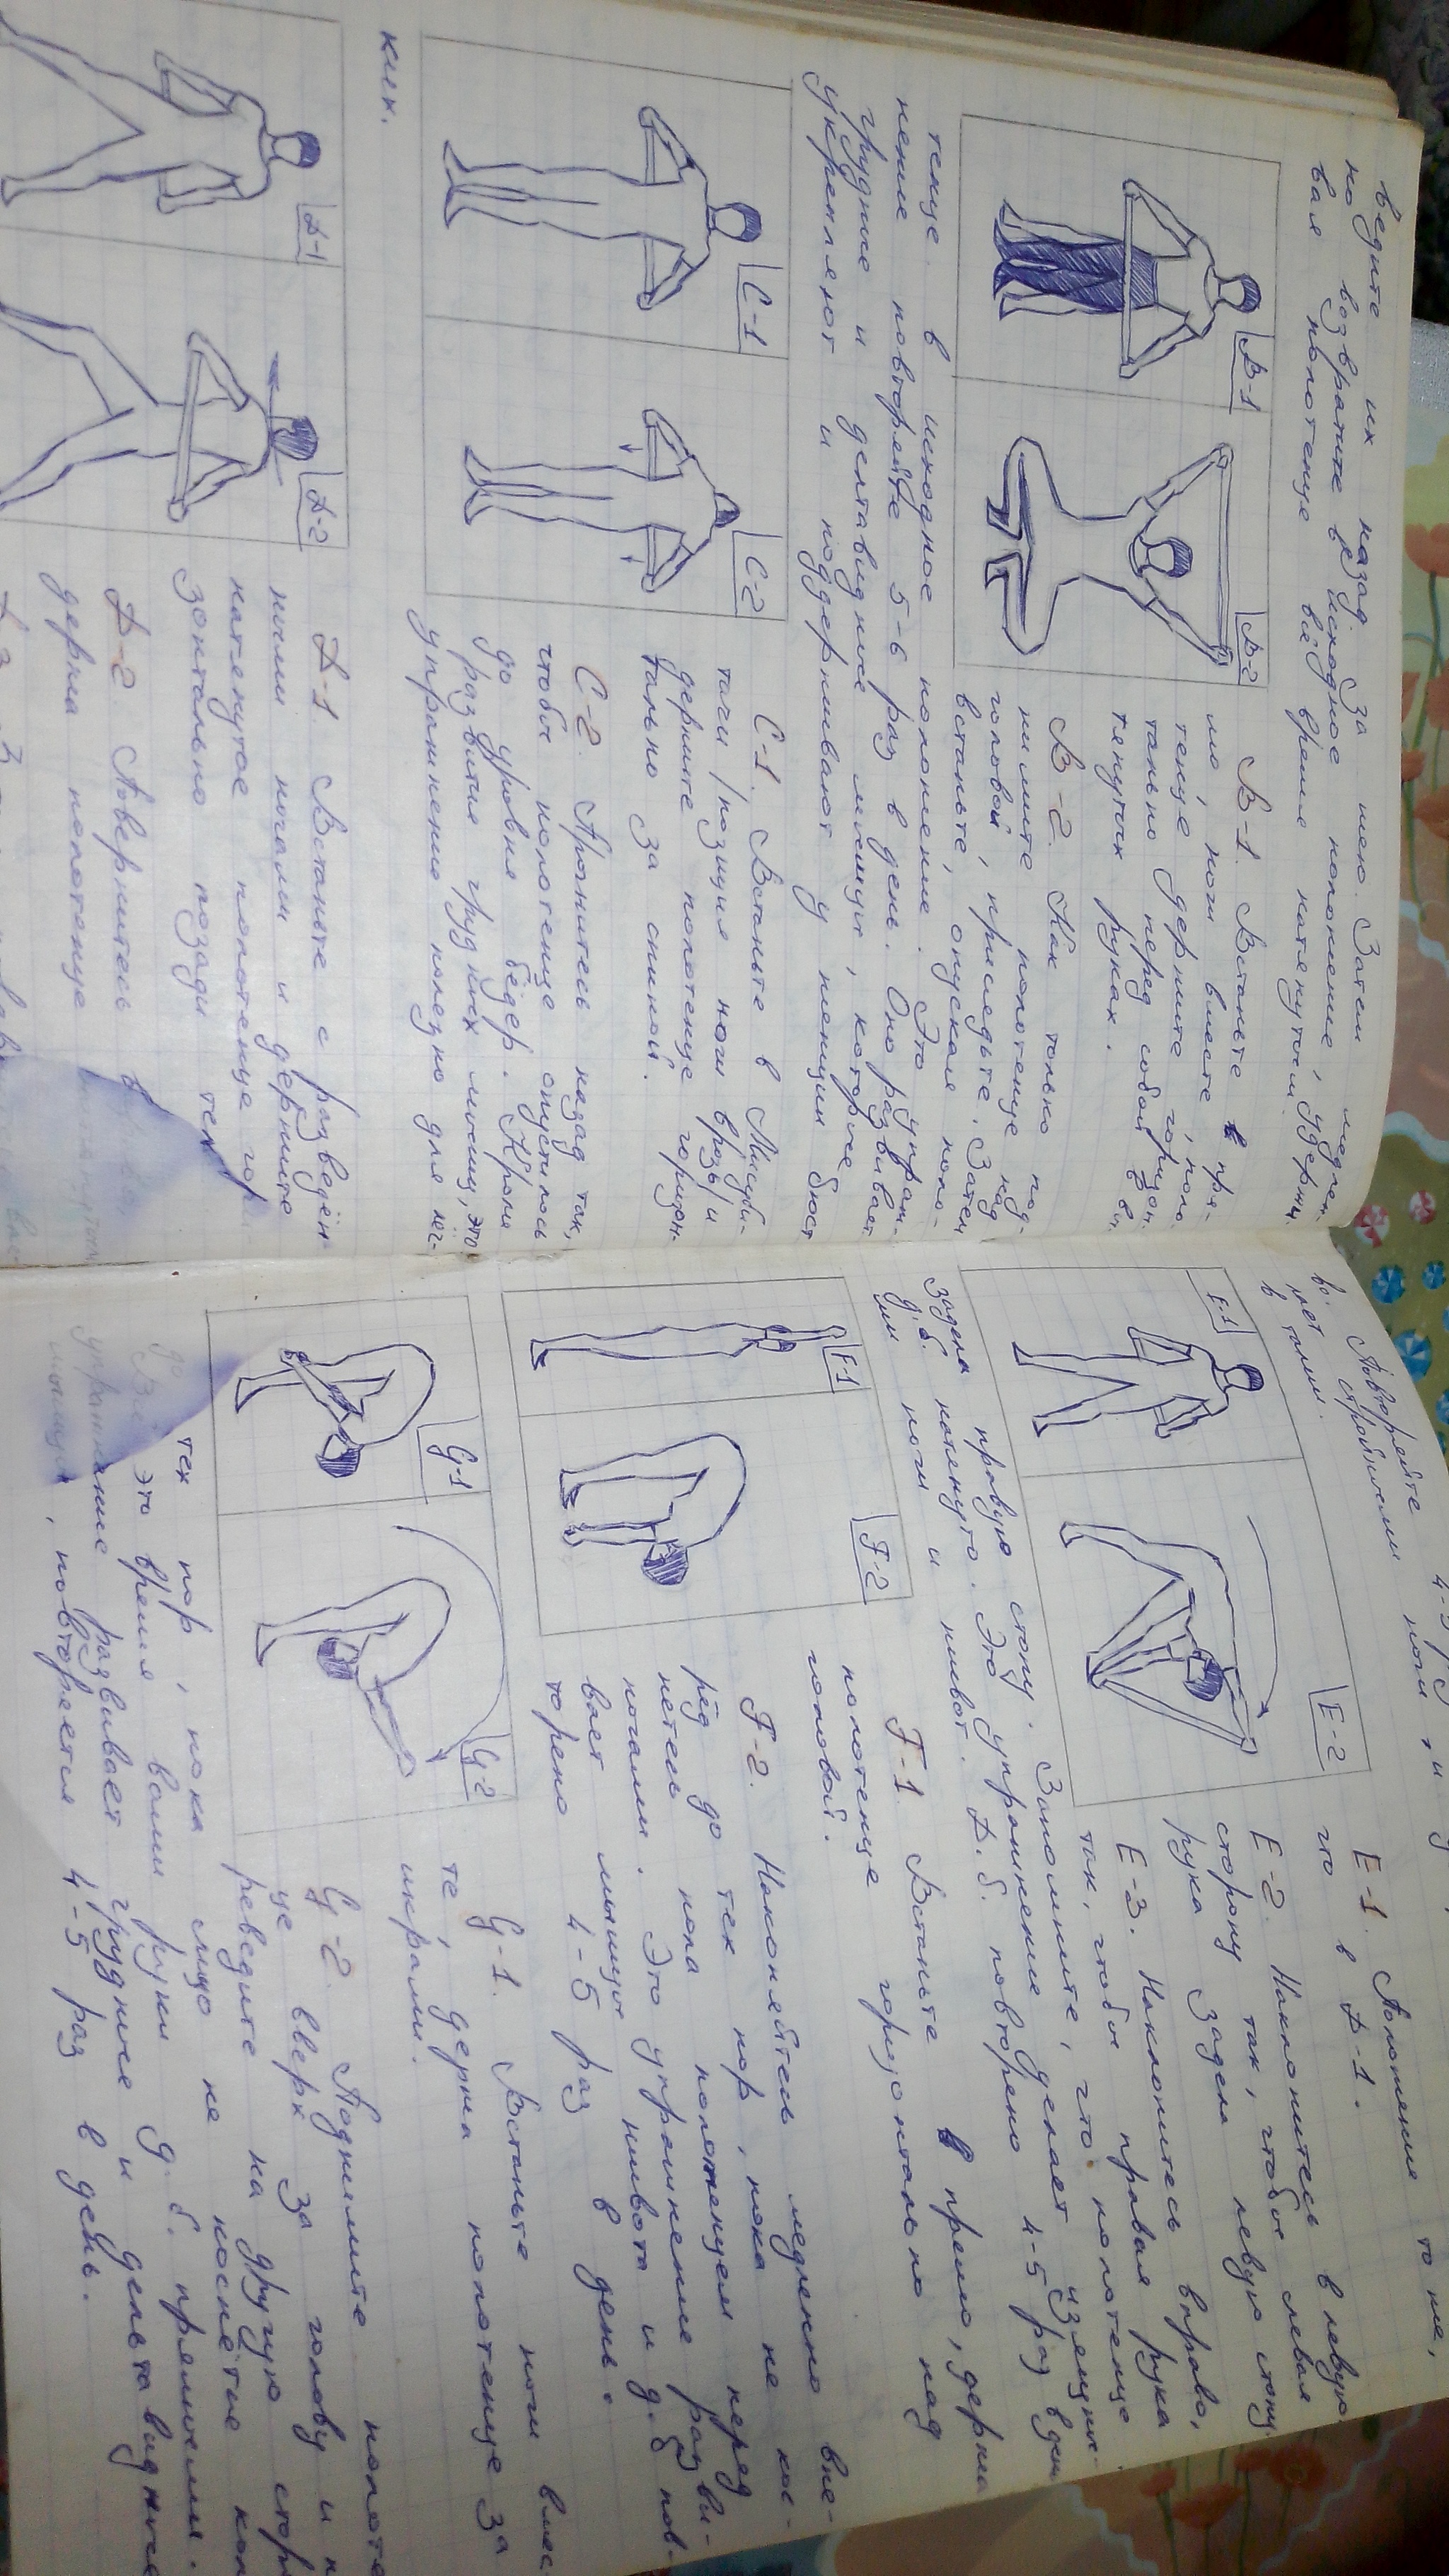 ведите их назад за шею. Затем медлен-
но возвратите в исходное положение, удержи-
вая полотенце всё время натянутым.
B-1
B-2
B-1. Встаньте в пря-
мо, ноги вместе, поло-
тенце держите горизон-
тально перед собой в вы-
тянутых руках.
B-2. Как только под-
нимите полотенце над
головой, присядьте. Затем
встаньте, опуская поло-
тенце в исходное положение. Это упраж-
нение повторяйте 5-6 раз в день. Оно развивает
грудные и дельтавидные мышцы, которые
укрепляют и поддерживают у женщин бюст
C-1
C-2
C-1. Встаньте в
позиция ноги врозь/ и
держите полотенце горизон-
тально за спиной.
C-2. Прогнитесь назад так,
чтобы полотенце опустилось
до уровня бёдер. Кроме
развития грудных мышц, это
упражнение полезно для лёг-
ких.
D-1
D-2
D-1. Встаньте с разведён-
ными ногами и держите
натянутое полотенце гори
зонтально позади
D-2. Повернитесь в
держа полотенце
во. Повторяйте 4-5 р
стройными ноги, и
в талии.
E-1
E-2
E-1. Положение то же,
что в D-1.
E-2. Наклонитесь в левую
сторону так, чтобы левая
рука задела левую стопу
E-3. Наклонитесь вправо,
так, чтобы правая рука
задела правую стопу. Запомните, что полотенце
д.б. натянуто. Это упражнение делает изящны-
ми ноги и живот. Д.б. повторено 4-5 раз в день
F-1
F-2
F-1. Встаньте в прямо, держа
полотенце горизонтально над
головой.
F-2. Наклоняйтесь медленно впе-
рёд до тех пор, пока не кос-
нетесь пола полотенцем перед
ногами. Это упражнение разви-
вает мышцы живота и д.б. пов-
торено 4-5 раз в день.
G-1
G-2
G-1. Встаньте ноги вмес-
те, держа полотенце за
икрами.
G-2. Поднимите полотен
це вверх за голову и
переведите на другую сторо
тех пор, пока лицо не коснётся кол
Всё это время ваши руки д.б. прямыми.
упражнение развивает грудные и дельтавидные
мышцы, повторяется 4-5 раз в день.